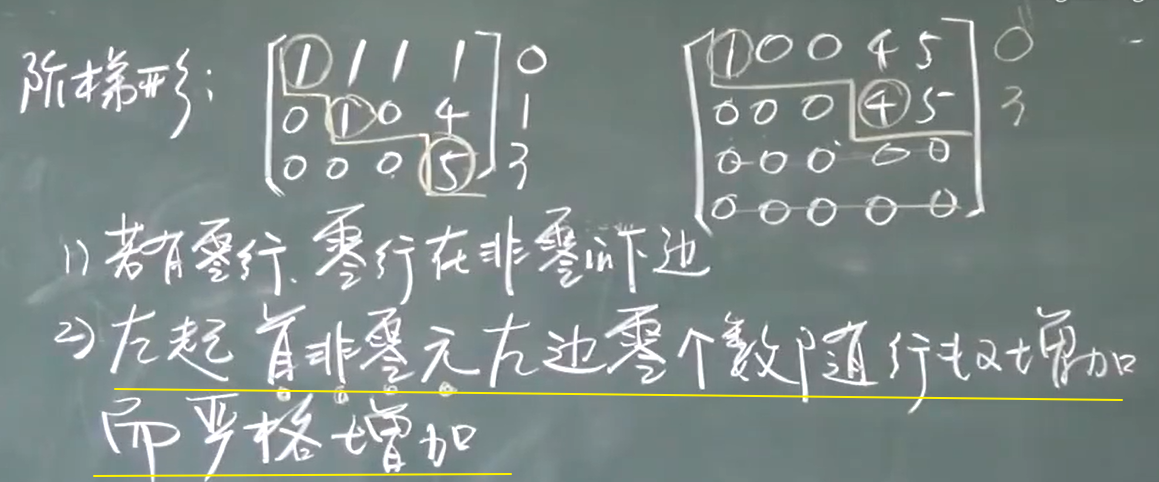 阶梯形: 1 1 1 1 0 1 0 0 4 5 0
0 1 0 4 1 0 0 0 4 5 3
0 0 0 5 3 0 0 0 0 0
0 0 0 0 0
1) 若有零行、零行在非零行下边
2) 左起首非零元左边零个数随行数增加
而严格增加